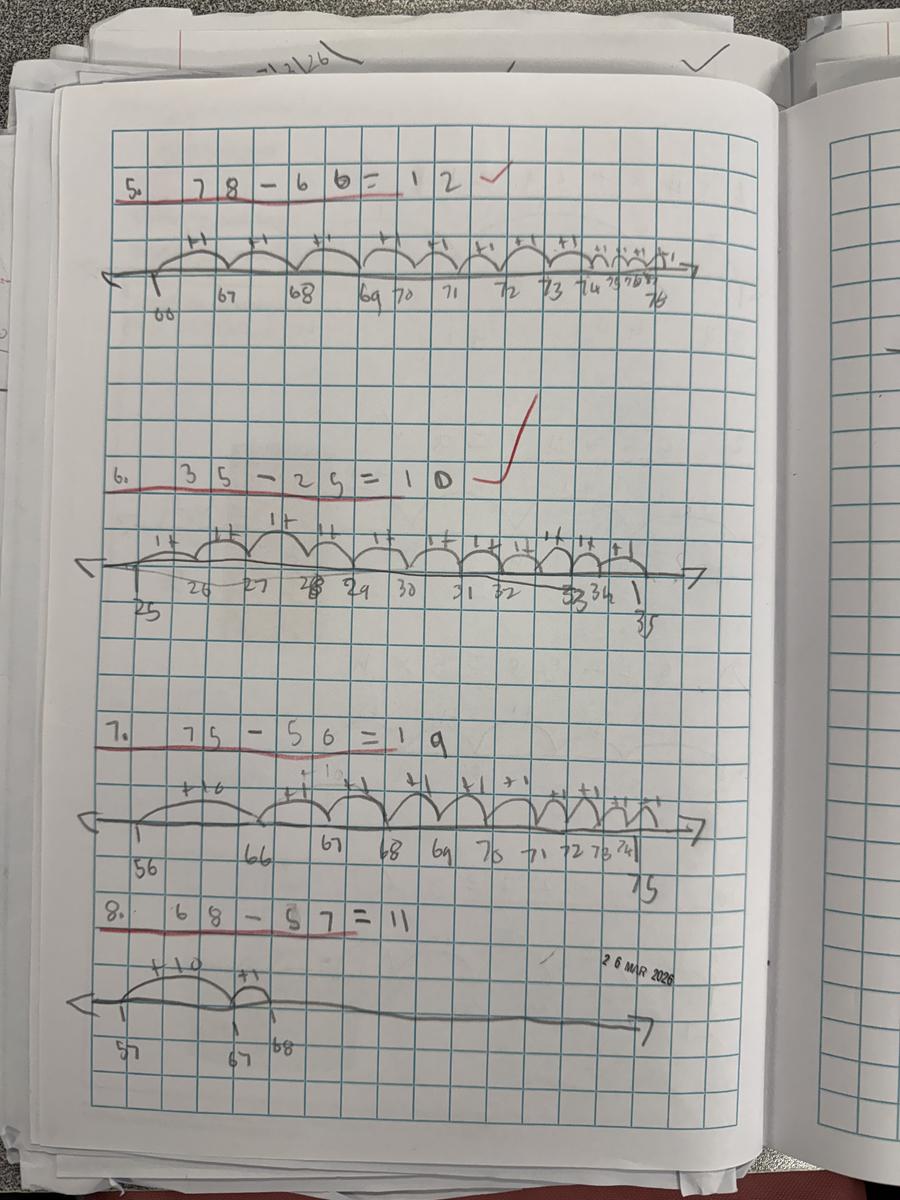 5. 78 - 66 = 12
+1 +1 +1 +1 +1 +1 +1 +1 +1 +1 +1 +1
66 67 68 69 70 71 72 73 74 75 76 77
78
6. 35 - 25 = 10
1+ 1+ 1+ 1+ 1+ 1+ 1+ 1+ 1+ 1+ +1
26 27 28 29 30 31 32 33 34
25 35
7. 75 - 56 = 19
+10 +1 +1 +1 +1 +1 +1 +1 +1 +1
56 66 67 68 69 70 71 72 73 74
75
8. 68 - 57 = 11
26 MAR 2026
+10 +1
57 67 68